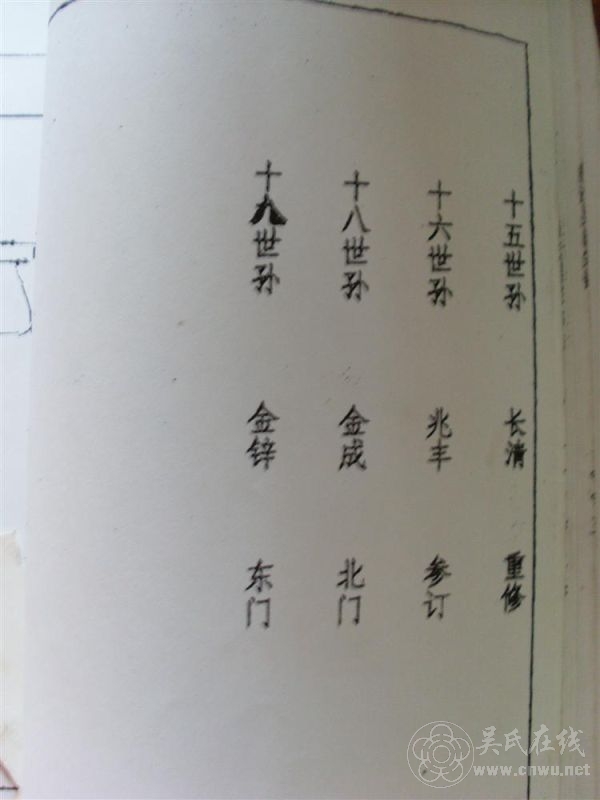 十五世孙 长清 重修
十六世孙 兆丰 参订
十八世孙 金成 北门
十八世孙 金锌 东门
吴氏在线
www.cnwu.net